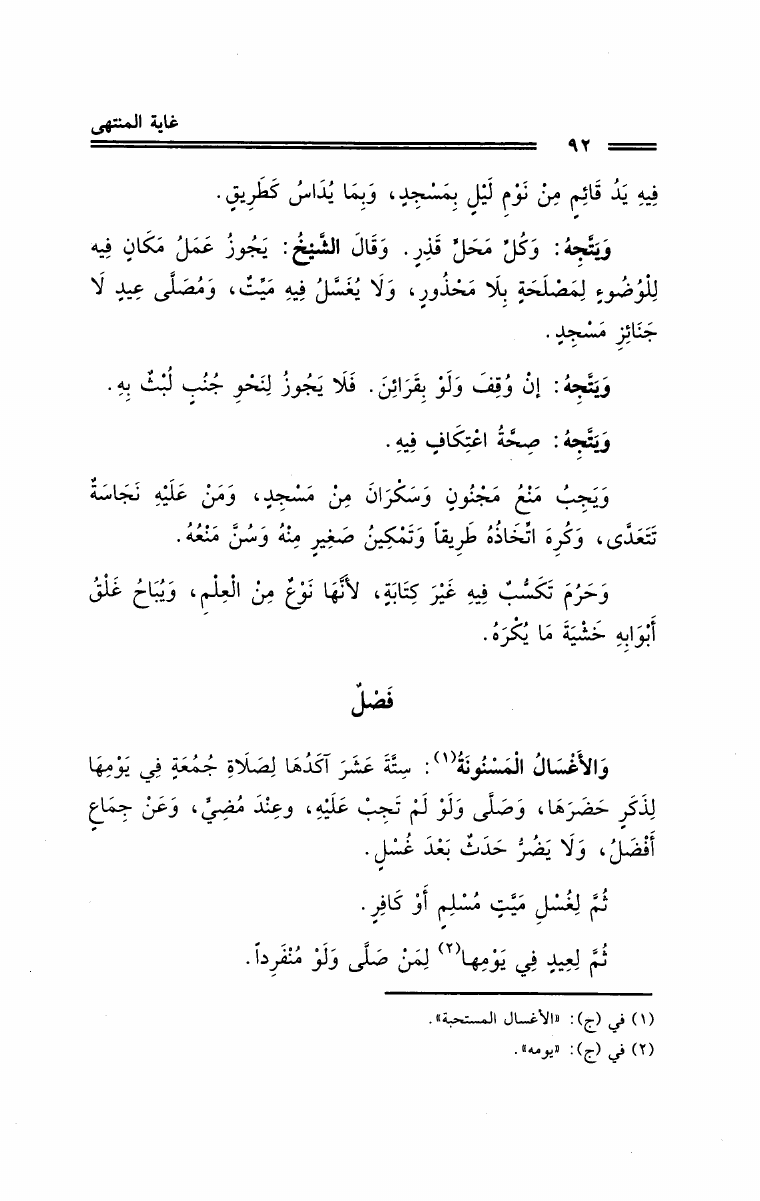 غاية المنتهى
٩٢
فِيهِ يَدُ قَائِمٍ مِنْ نَوْمِ لَيْلٍ بِمَسْجِدٍ، وَبِمَا يُدَاسُ كَطَرِيقٍ.
وَيَتَّجِهُ: وَكُلِّ مَحَلٍّ قَذِرٍ. وَقَالَ الشَّيْخُ: يَجُوزُ عَمَلُ مَكَانٍ فِيه
لِلْوُضُوءِ لِمَصْلَحَةٍ بِلَا مَحْذُورٍ، وَلَا يُغَسَّلُ فِيهِ مَيِّتٌ، وَمُصَلَّى عِيدٍ لَا
جَنَائِزِ مَسْجِدٍ.
وَيَتَّجِهُ: إنْ وُقِفَ وَلَوْ بِقَرَائِنَ. فَلَا يَجُوزُ لِنَحْوِ جُنُبٍ لُبْثٌ بِهِ.
وَيَتَّجِهُ: صِحَّةُ اعْتِكَافٍ فِيهِ.
وَيَجِبُ مَنْعُ مَجْنُونٍ وَسَكْرَانَ مِنْ مَسْجِدٍ، وَمَنْ عَلَيْهِ نَجَاسَةٌ
تَتَعَدَّى، وَكُرِهَ اتِّخَاذُهُ طَرِيقاً وَتَمْكِينُ صَغِيرٍ مِنْهُ وَسُنَّ مَنْعُهُ.
وَحَرُمَ تَكَسُّبٌ فِيهِ غَيْرَ كِتَابَةٍ، لأَنَّهَا نَوْعٌ مِنْ الْعِلْمِ، وَيُبَاحُ غَلْقُ
أَبْوَابِهِ خَشْيَةَ مَا يُكْرَهُ.
فَصْلٌ
وَالأَغْسَالُ الْمَسْنُونَةُ(١): سِتَّةَ عَشَرَ آكَدُهَا لِصَلَاةِ جُمُعَةٍ فِي يَوْمِهَا
لِذَكَرٍ حَضَرَهَا، وَصَلَّى وَلَوْ لَمْ تَجِبْ عَلَيْهِ، وعِنْدَ مُضِيٍّ، وَعَنْ جِمَاعٍ
أَفْضَلُ، وَلَا يَضُرُّ حَدَثٌ بَعْدَ غُسْلٍ.
ثُمَّ لِغُسْلِ مَيَّتٍ مُسْلِمٍ أَوْ كَافِرٍ.
ثُمَّ لِعِيدٍ فِي يَوْمِها(٢) لِمَنْ صَلَّى وَلَوْ مُنْفَرِداً.
(١) في (ج): «الأغسال المستحبة».
(٢) في (ج): «يومه».